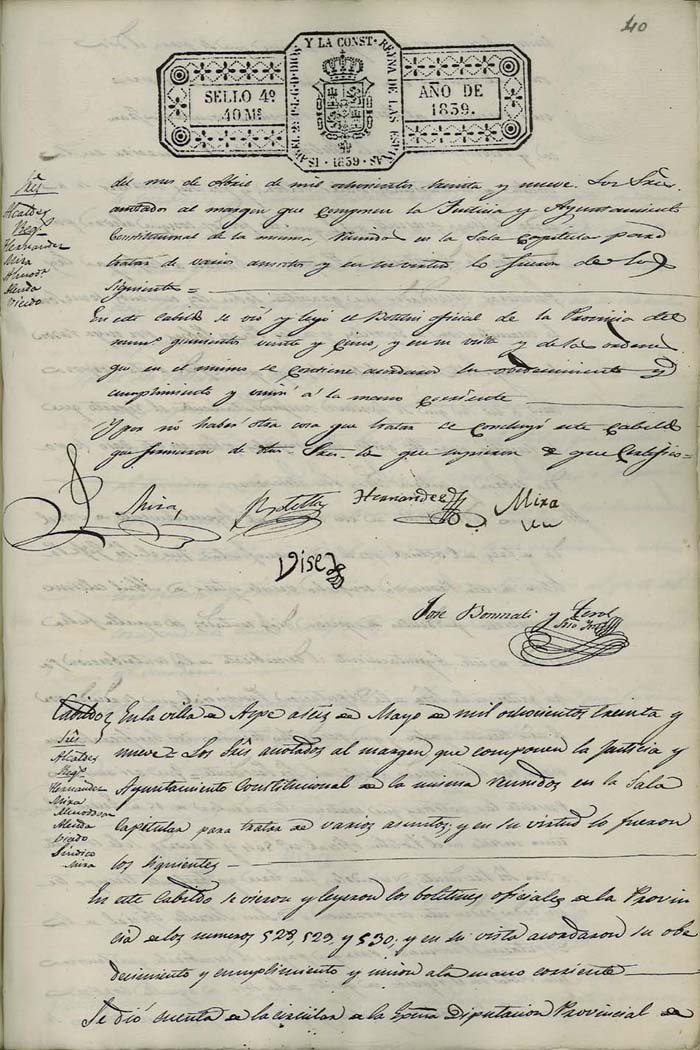 40
SELLO 4º
40 Ms
ISABEL 2ª P. L. G. D. DIOS Y LA CONST. REYNA DE LAS ESPAÑAS
1839
AÑO DE
1839.
Sres
Alcaldes
Regs
Hernandez
Mira
Almodo
Alenda
Vicedo
del mes de Abril de mil ochocientos treinta y nueve. Los Sres.
anotados al margen que componen la Justicia y Ayuntamiento
Constitucional de la misma reunidos en la Sala Capitular para
tratar de varios asuntos y en su virtud lo fueron de los
siguientes =
En este Cabildo se vió y leyó el Boletin oficial de la Provincia del
num.º quinientos veinte y cinco, y en su vista y de las ordenes
que en el mismo se contiene acordaron su obedecimiento y
cumplimiento y unir á la mano corriente
Y por no haber otra cosa que tratar se concluyó este Cabildo
que firmaron de dhos. Sres. los que supieron de que Certifico =
Mira,
Botella
Hernandez
Mira
Visedo
José Bonmati y Terol
Srio
Cabildo
Sres
Alcaldes
Regs
Hernandez
Mira
Almodovar
Alenda
Vicedo
Sindico
Mira
En la villa de Aspe a seis de Mayo de mil ochocientos treinta y
nueve = Los Sres anotados al margen que componen la Justicia y
Ayuntamiento Constitucional de la misma reunidos en la Sala
Capitular para tratar de varios asuntos; y en su virtud lo fueron
los siguientes
En este Cabildo se vieron y leyeron los boletines oficiales de la Provin
cia de los numeros 528, 529, y 530. y en su vista acordaron su obe
decimiento y cumplimiento y union a la mano corriente
Se dió cuenta de la circular de la Exma Diputacion Provincial de